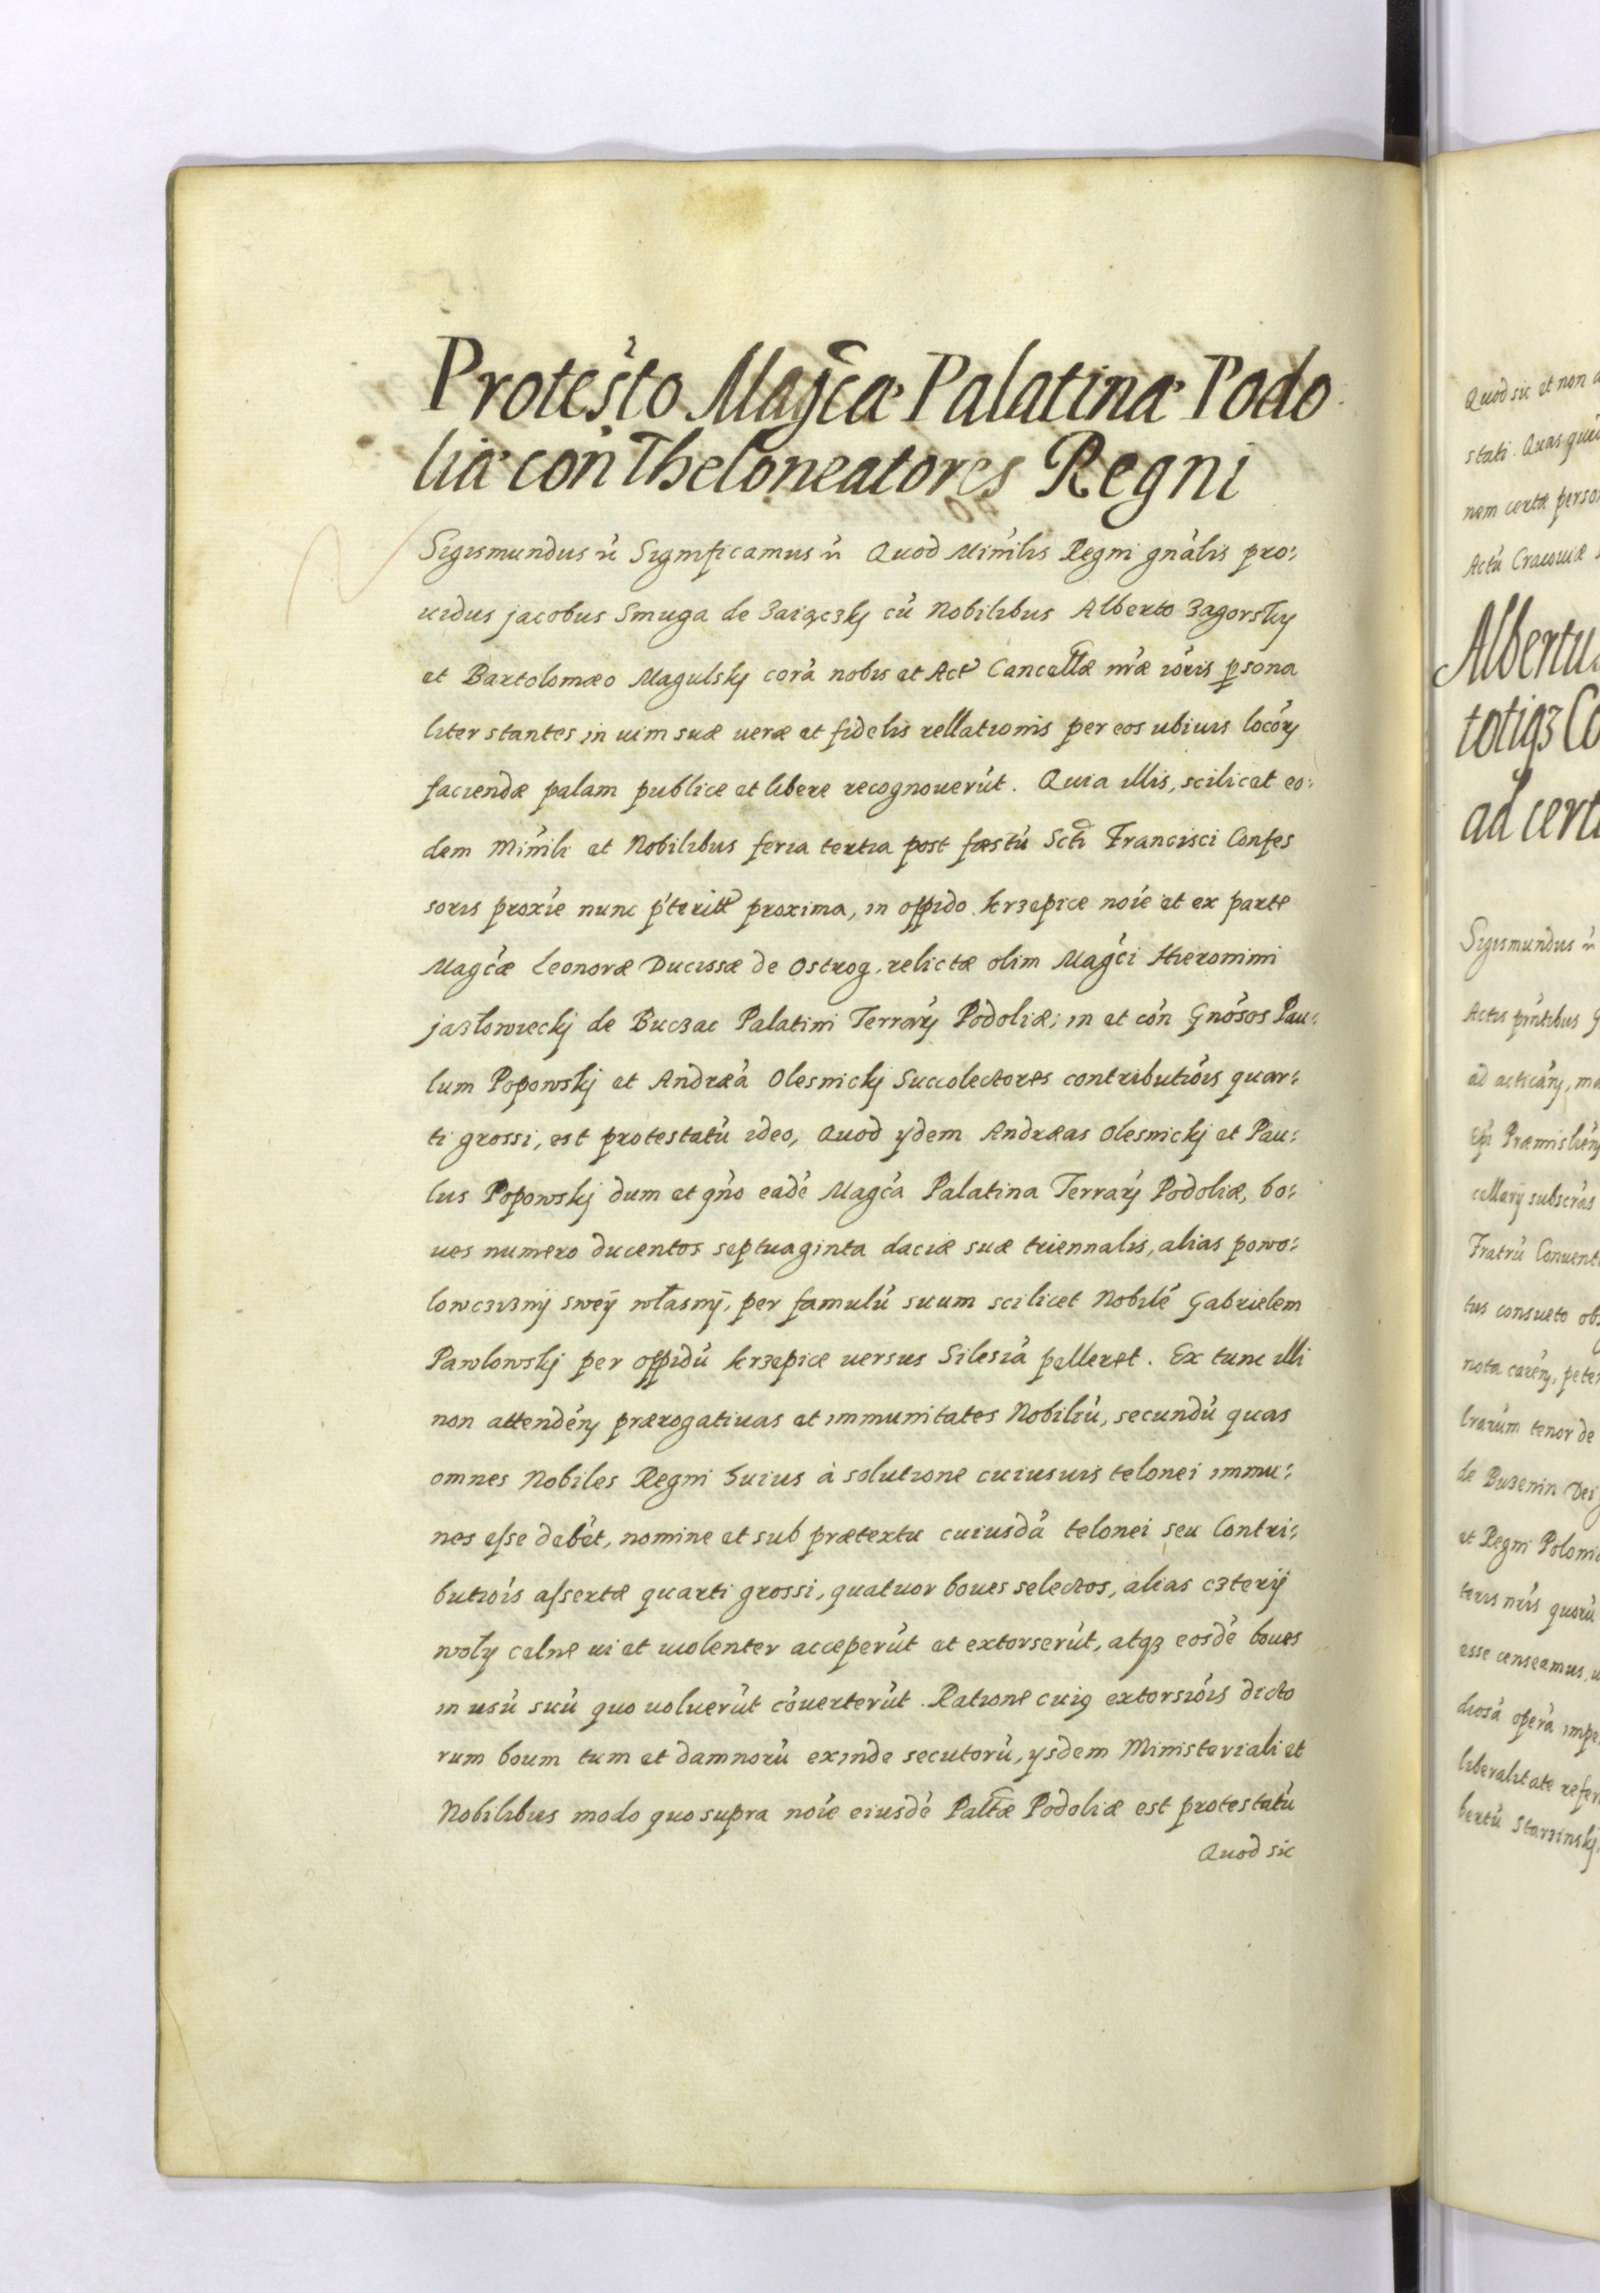 Protesto Magcæ Palatinæ Podo
liæ con Theloneatores Regni
Sigismundus Significamus Quod Minilis Regni gnalis pro:
uidus jacobus Smuga de Zaiączkj cū Nobilibus Alberto Zagorsky
et Bartolomæo Magulskj corā nobis et Act Cancellæ nræ ioris psona
liter stantes in uim suæ ueræ et fidelis rellationis per eos ubiuis locorȝ
faciendæ palam publice et libere recognouerūt. Quia illis, scilicet eo:
dem Minili et Nobilibus feria tertia post fæstū Scti Francisci Confes
soris proxie nunc pterita proxima, in oppido krzepice noie et ex parte
Magcæ Leonoræ Ducissæ de Ostrog, relictæ olim Magci Hieronimi
jazłowieckj de Buczac Palatini Terrarȝ Podoliæ; in et con Gnosos Pau:
lum Popowskj et Andræā Olesnickj Succolectores contributiois quar:
ti grossi, est protestatū ideo, Quod ydem Andræas Olesnickj et Pau:
lus Popowskj dum et qno eadē Magca Palatina Terrarȝ Podoliæ, bo:
ues numero ducentos septuaginta daciæ suæ triennalis, alias powo:
lowczyznÿ sweÿ własnÿ, per famulū suum scilicet Nobilē Gabrielem
Pawlowskj per oppidū krzepice uersus Silesiā pelleret. Ex tunc illi
non attendēn prærogatiuas et immunitates Nobiliū, secundū quas
omnes Nobiles Regni huius à solutione cuiusuis telonei immu:
nes esse debēt, nomine et sub prætextu cuiusdā telonei seu Contri:
butiois assertæ quarti grossi, quatuor boues selectos, alias czterÿ
woły celne ui et uiolenter acceperūt et extorserūt, atqȝ eosdē boues
in usū suū quo uoluerūt cōuerterūt. Ratione cuiꝯ extorsiois dicto
rum boum tum et damnorū exinde secutorū, ysdem Ministeriali et
Nobilibus modo quo supra noie eiusdē Paltæ Podoliæ est protestatū
Quod sic
Quod sic et non
stati. Quas
nem certæ
Actū Cracouiæ
totiqȝ
ad
Sigismundus
Actis
ad
cellarÿ
Fratrū
tus consueto
nota
tenor de
de Buzenin Dei
et Regni
quorū
esse censeamus,
diosā operā
liberalitate
bertū Starzinskj